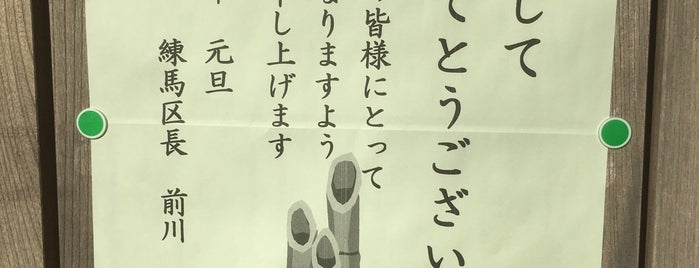 して
てとうござい
皆様にとって
なりますよう
し上げます
元旦
練馬区長 前川